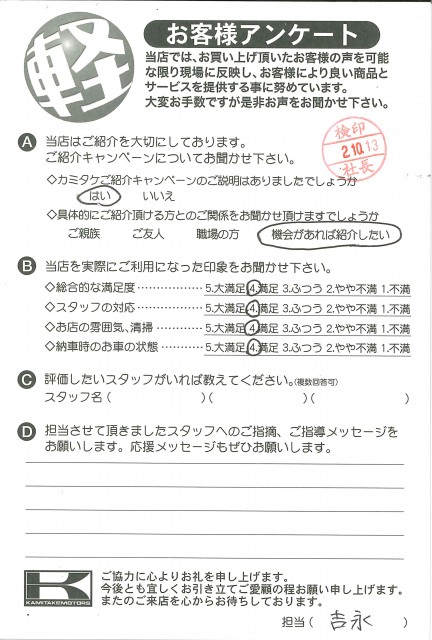 軽
お客様アンケート
当店では、お買い上げ頂いたお客様の声を可能
な限り現場に反映し、お客様により良い商品と
サービスを提供する事に努めています。
大変お手数ですが是非お声をお聞かせ下さい。
検印
2.10.13
社長
A 当店はご紹介を大切にしております。
ご紹介キャンペーンについてお聞かせ下さい。
◇カミタケご紹介キャンペーンのご説明はありましたでしょうか
はい いいえ
◇具体的にご紹介頂ける方とのご関係をお聞かせ頂けますでしょうか
ご親族 ご友人 職場の方 機会があれば紹介したい
B 当店を実際にご利用になった印象をお聞かせ下さい。
◇総合的な満足度 …………… 5.大満足 4.満足 3.ふつう 2.やや不満 1.不満
◇スタッフの対応 …………… 5.大満足 4.満足 3.ふつう 2.やや不満 1.不満
◇お店の雰囲気、清掃 ……… 5.大満足 4.満足 3.ふつう 2.やや不満 1.不満
◇納車時のお車の状態 ……… 5.大満足 4.満足 3.ふつう 2.やや不満 1.不満
C 評価したいスタッフがいれば教えてください。(複数回答可)
スタッフ名 ( )( )( )
D 担当させて頂きましたスタッフへのご指摘、ご指導メッセージを
お願いします。応援メッセージもぜひお願いします。
K
KAMITAKEMOTORS
ご協力に心よりお礼を申し上げます。
今後とも宜しくお引き立てご愛顧の程お願い申し上げます。
またのご来店を心からお待ちしております。
担当 ( 吉永 )